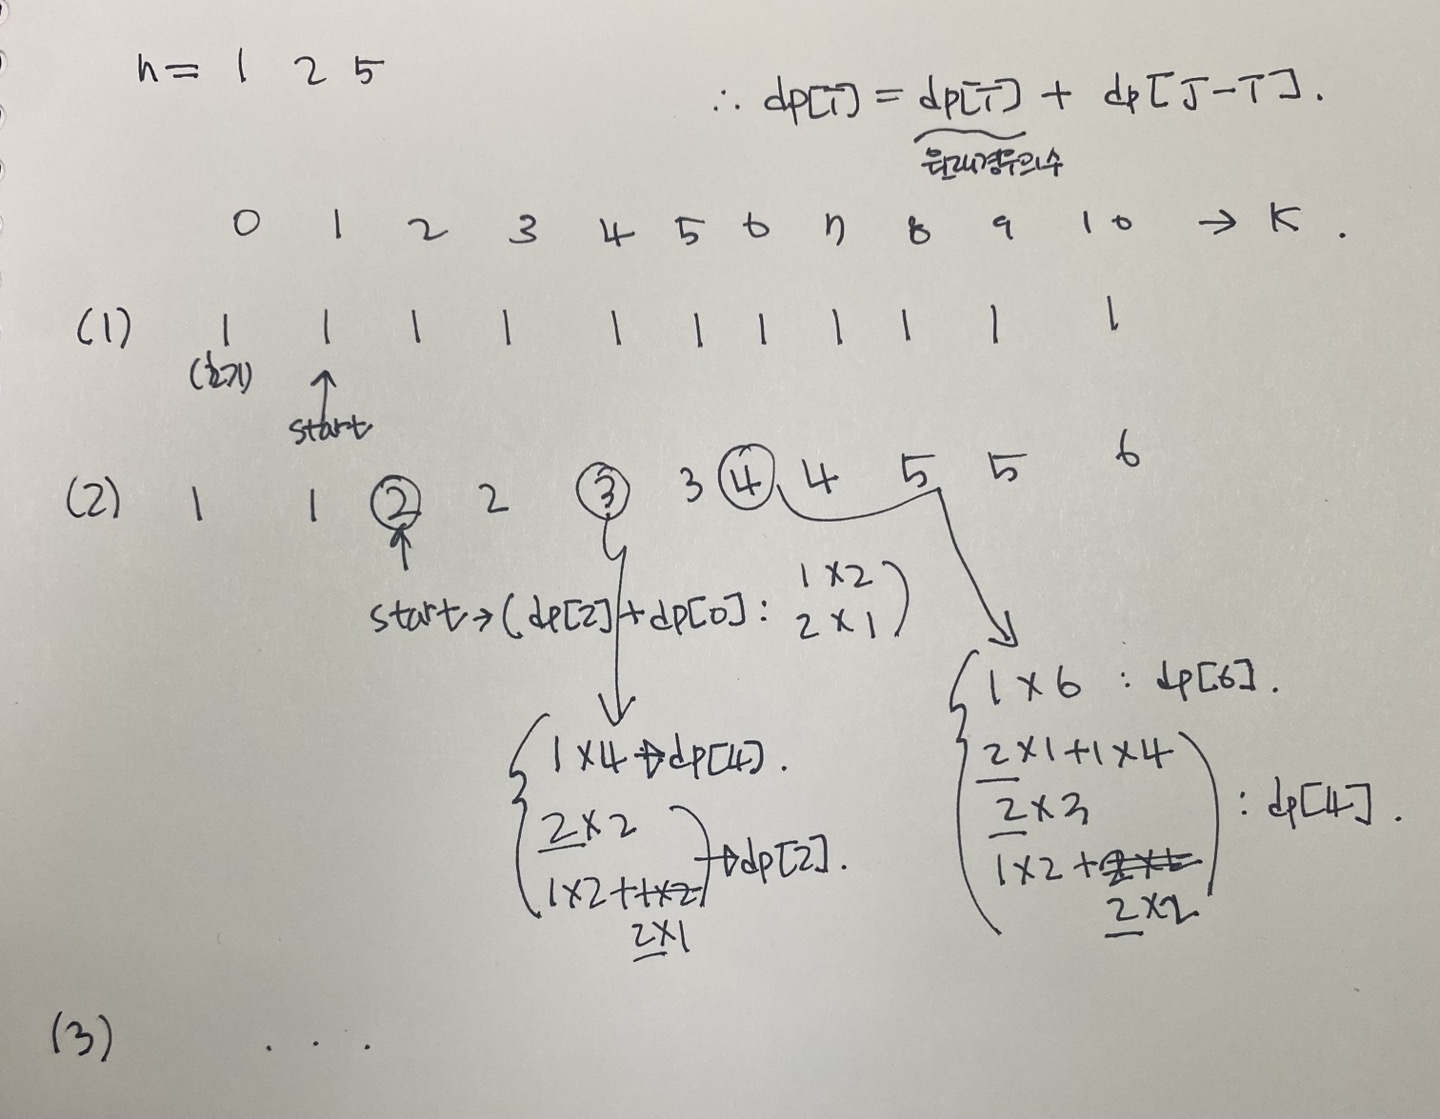 n= 1 2 5
∴ dp[T] = dp[T] + dp[J-T].
원래경우의수
0 1 2 3 4 5 6 7 8 9 10 → K.
(1) 1 1 1 1 1 1 1 1 1 1 1
(초기)
start
(2) 1 1 2 2 3 3 4 4 5 5 6
start→(dp[2]+dp[0]: 1x2
2x1)
1x4→dp[4].
2x2
1x2+1x2
2x1
→dp[2].
1x6 : dp[6].
2x1+1x4
2x3
1x2+2x1
2x2
: dp[4].
(3) . . .